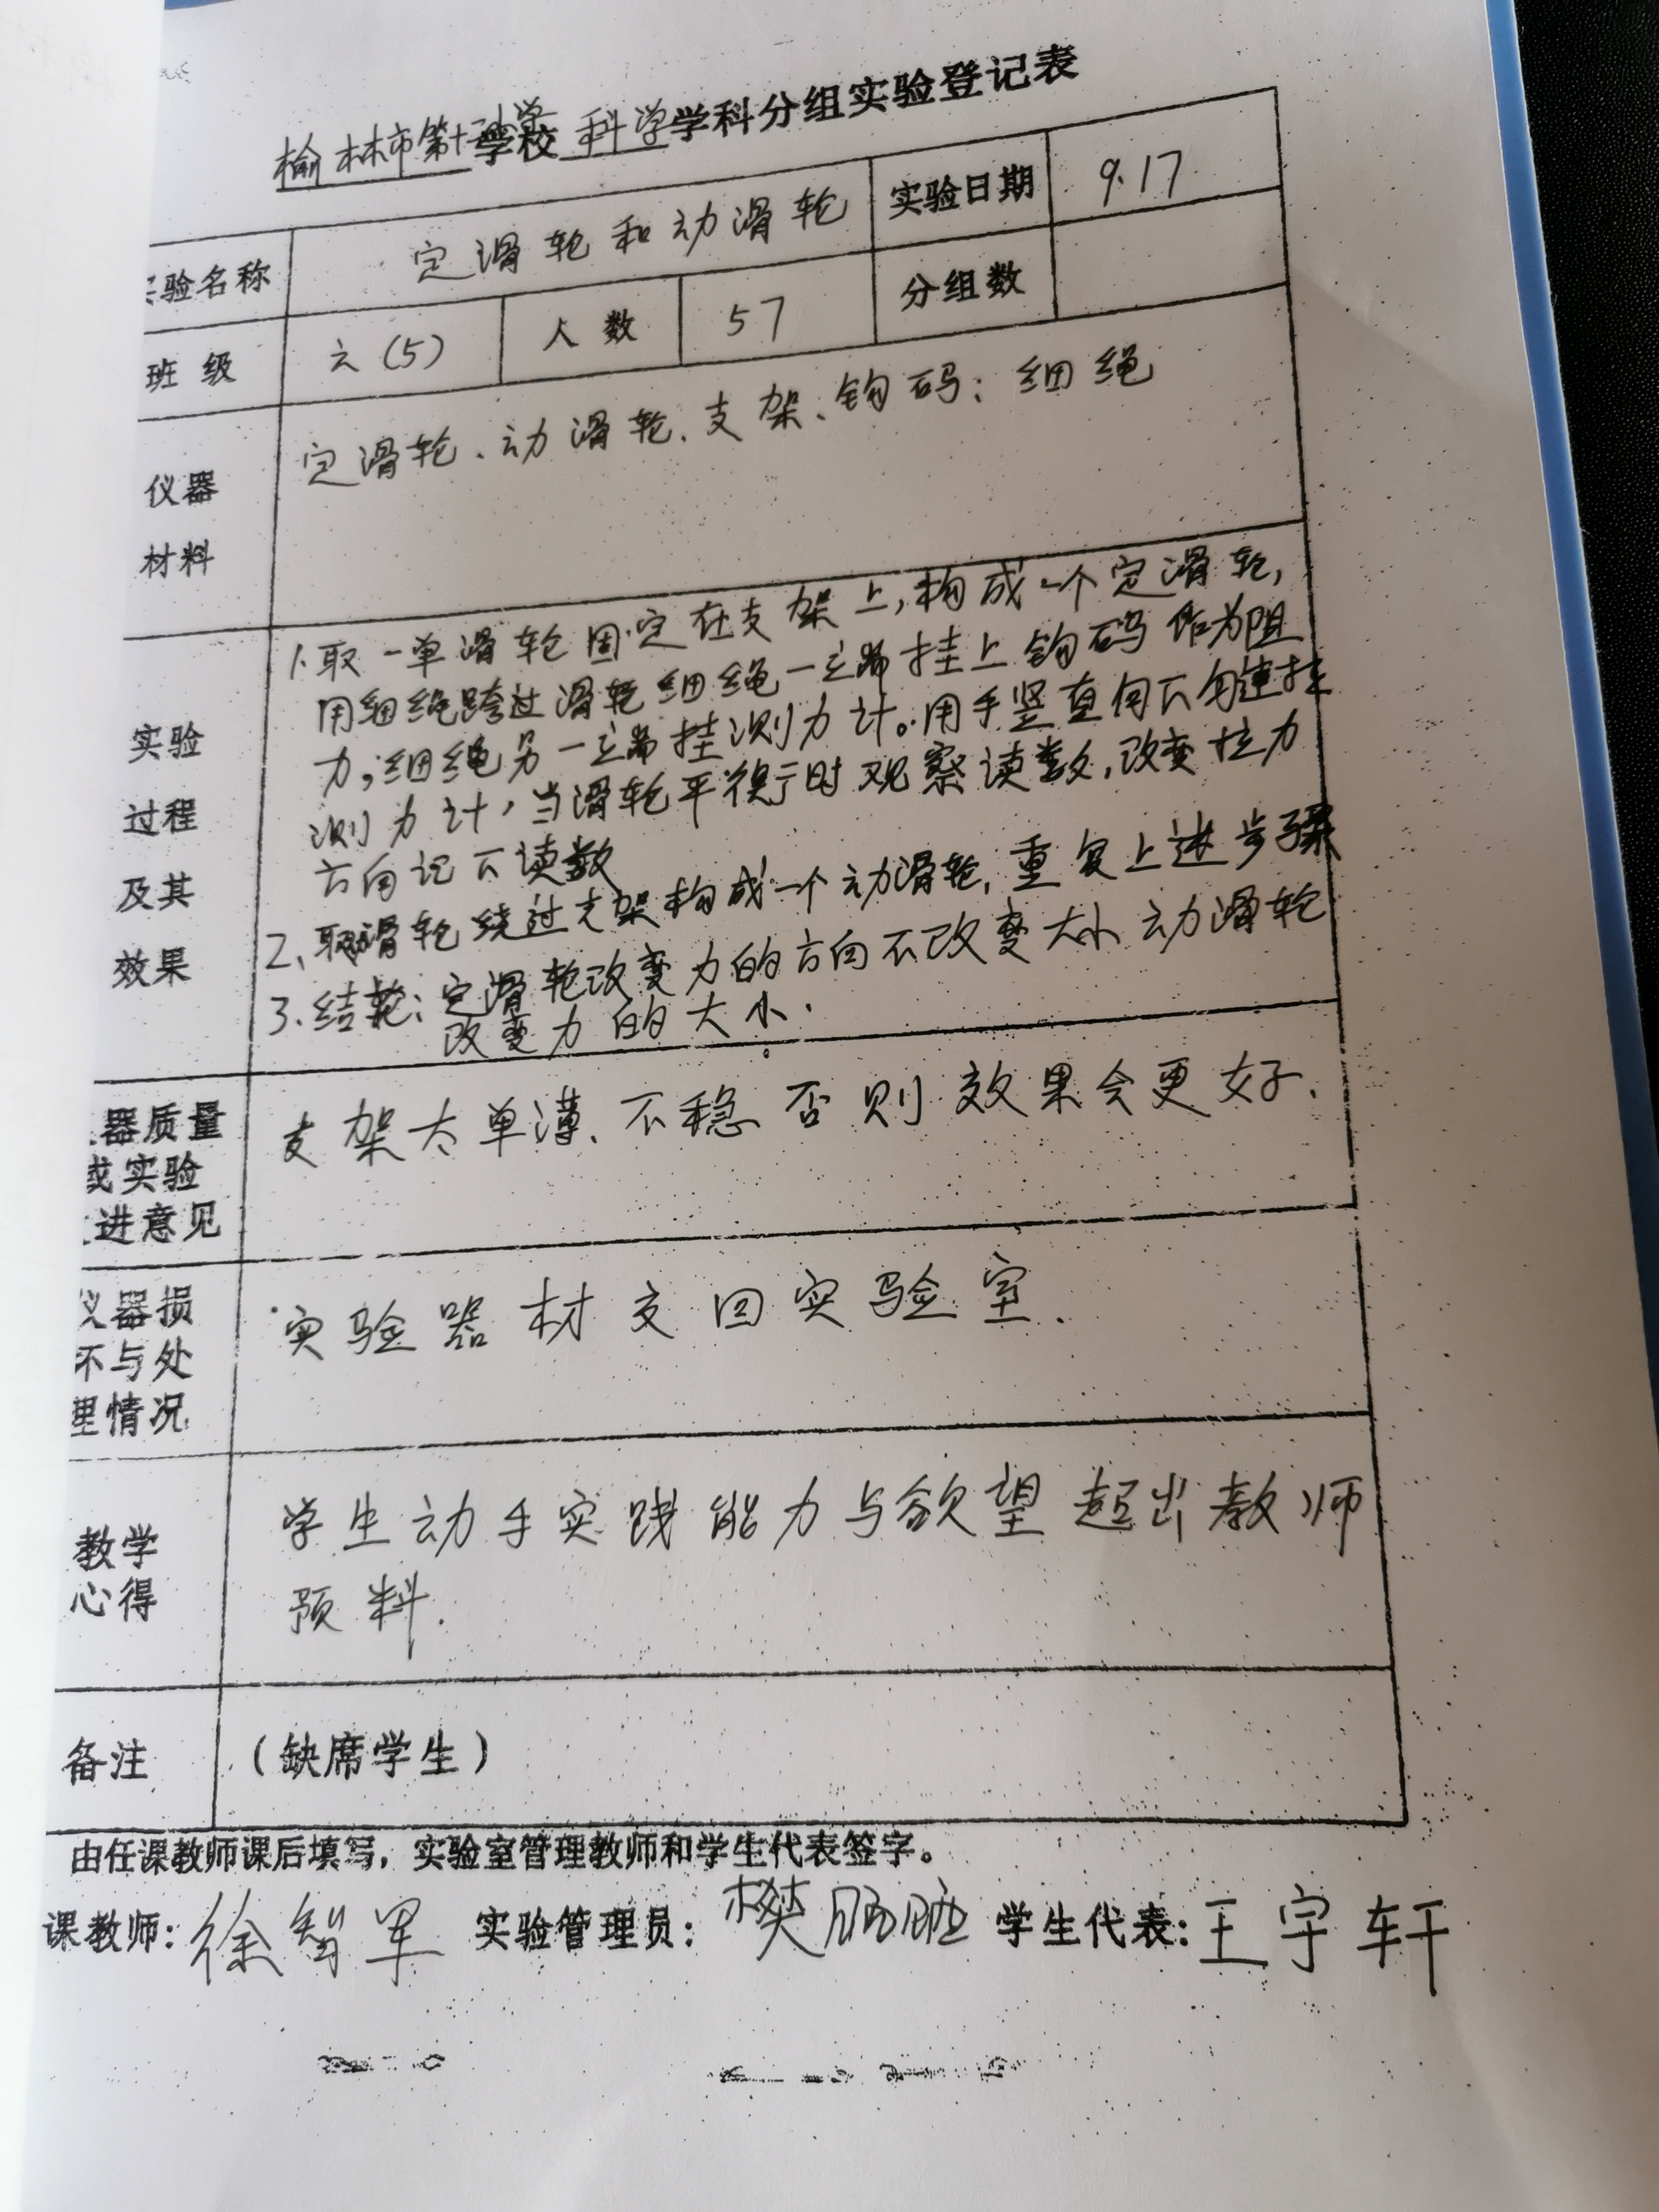 榆林市第十小学学校 科学学科分组实验登记表
验名称 定滑轮和动滑轮 实验日期 9.17
班级 六(5) 人数 57 分组数
仪器
材料
定滑轮、动滑轮、支架、钩码、细绳
实验
过程
及其
效果
1.取一单滑轮固定在支架上,构成一个定滑轮,
用细绳跨过滑轮细绳一端挂上钩码作为阻
力,细绳另一端挂测力计。用手竖直向下匀速拉
测力计,当滑轮平衡时观察读数,改变拉力
方向记下读数
2、取滑轮绕过支架构成一个动滑轮,重复上述步骤
3.结轮:定滑轮改变力的方向不改变大小 动滑轮
改变力的大小.
器质量
或实验
进意见
支架太单薄、不稳 否则效果会更好.
仪器损
坏与处
理情况
实验器材交回实验室.
教学
心得
学生动手实践能力与欲望超出教师
预料.
备注 (缺席学生)
由任课教师课后填写,实验室管理教师和学生代表签字。
课教师: 徐智军 实验管理员: 樊 学生代表: 王宇轩